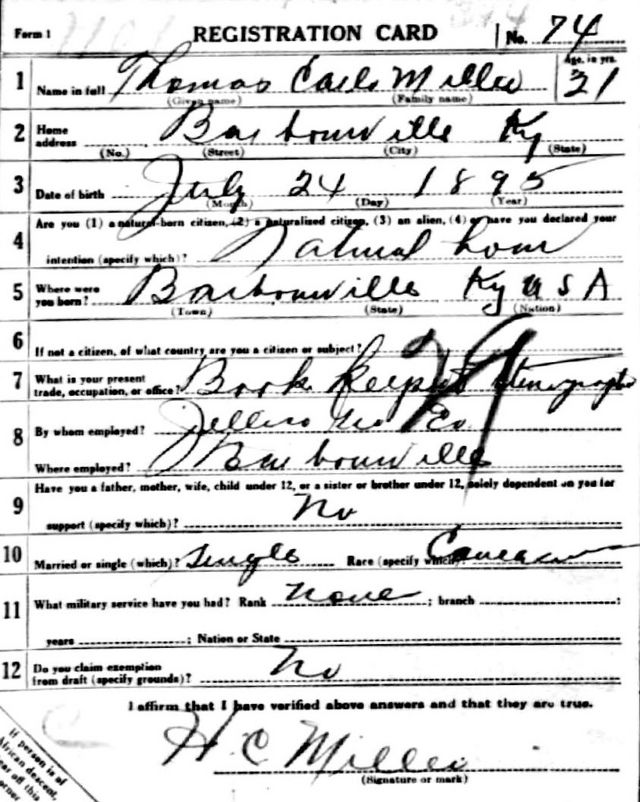 Form 1 REGISTRATION CARD No. 74
1 Name in full Thomas Earle Miller Age, in yrs. 21
(Given name) (Family name)
2 Home address Barbourville Ky
(No.) (Street) (City) (State)
3 Date of birth July 24 1895
(Month) (Day) (Year)
4 Are you (1) a natural-born citizen, (2) a naturalized citizen, (3) an alien, (4) or have you declared your
intention (specify which)? Natural born
5 Where were you born? Barbourville Ky U S A
(Town) (State) (Nation)
6 If not a citizen, of what country are you a citizen or subject?
7 What is your present trade, occupation, or office? Book keeper Stenographer
8 By whom employed? Jellico Co
Where employed? Barbourville
9 Have you a father, mother, wife, child under 12, or a sister or brother under 12, solely dependent on you for
support (specify which)? No
10 Married or single (which)? Single Race (specify which)? Caucasian
11 What military service have you had? Rank None ; branch ;
years ; Nation or State
12 Do you claim exemption from draft (specify grounds)? No
I affirm that I have verified above answers and that they are true.
H C Miller
(Signature or mark)
If person is of
African descent,
tear off this
corner